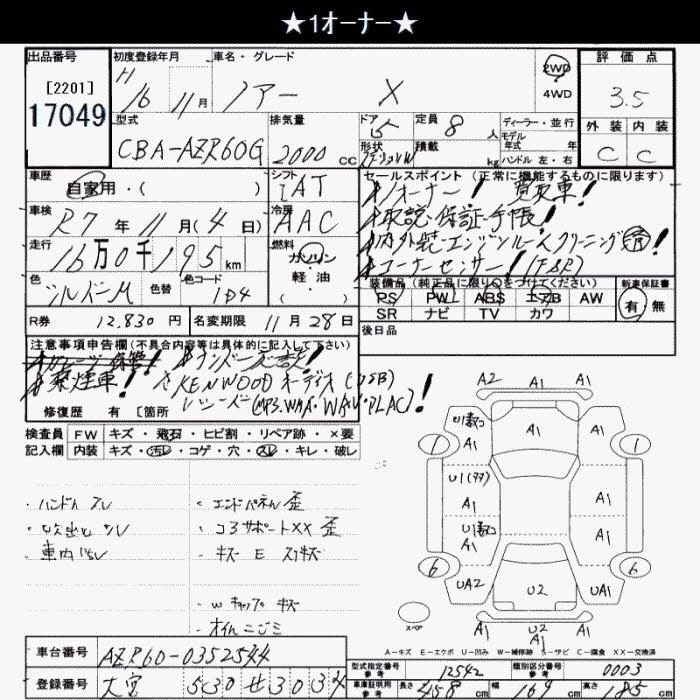 ★1オーナー★
出品番号 初度登録年月 車名・グレード 2WD 評価点
[2201] H 16年 11月 ノアー X 4WD 3.5
17049 型式 排気量 ドア 5 定員 8人 ディーラー・並行 外装 内装
モデル年式 年式
CBA-AZR60G 2000cc 形状 積載 kg ハンドル 左・右 C C
車歴 シフト セールスポイント(正常に機能するものに限ります)
自家用・( ) IAT 1オーナー! 買取車!
車検 R7年 11月(4日) 冷房 AAC 取説・保証手帳!
走行 16万0千195km 燃料 ガソリン 内外装・エンジンルームクリーニング済!
軽・油 コーナーセンサー!
色 シルバーM 色替 色コード 1D4 ( 装備品(純正品に限り○をつけてください) 新車保証書
PS PW ABS エアB AW 有・無
R券 12,830円 名変期限 11月28日 SR ナビ TV カワ
後日品
注意事項申告欄(不具合内容等は具体的に記入して下さい)
禁煙車! KENWOODオーディオ(USB)
修復歴 有 [箇所 (MP3.WMA・WAV・FLAC)!
検査員 FW キズ・飛石・ヒビ割・リペア跡・×要
記入欄 内装 キズ・汚レ・コゲ・穴・スレ・キレ・破レ
A2 A1 A1
A1 A1 A1
1 1
U1 A1
A1
U1 A1
A1
6 6
UA2 U2 UA1
U2
A1 A1
・ハンドルスレ ・エンドパネル歪
・コアサポートXX 歪
・車内汚レ ・キズ E スリキズ
・W キャップ キズ
・オイルニジミ
スペア
A-キズ E-エクボ U-凹み W-補修跡 S-サビ C-腐食 XX-交換済
車台番号 AZR60-0352544
型式指定番号 参考 12542 類別区分番号 参考 0003
登録番号 大宮 530 せ 3034
車庫証明用 参考 長さ 458cm 幅 169cm 高さ 185cm